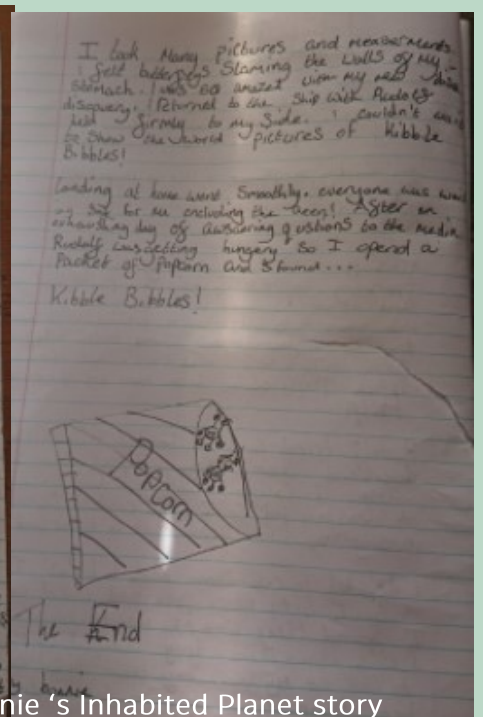 I took Many pictures and measurments
I felt butterflys Slaming the walls of my
Stomach. I was so amazed with my new
discovery. I returned to the Ship with Rudolf
held firmly to my Side. I couldn't
to Show the world pictures of Kibble
Bibbles!
Landing at home went Smoothly. everyone was
for me including the Queen! After an
exhausting day of awnsering qustions to the media
Rudolf was getting hungery so I opend a
Packet of Popcorn and I found...
Kibble Bibbles!
Popcorn
The End
nie 's Inhabited Planet story